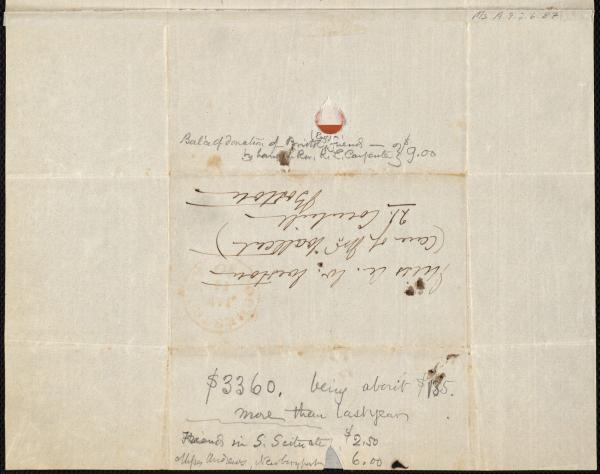 Ms. A.9.2.6.87
(Eng.)
Bal. of donation of Bristol Friends — of $
by hand of Rev. R. L. Carpenter } 9.00
Miss A. W. Weston
(Care of Mr Wallcut)
21 Cornhill
Boston
$3360. being about $135.
more than last year
Friends in S. Scituate $2.50
Andrews, Newburyport 6.00